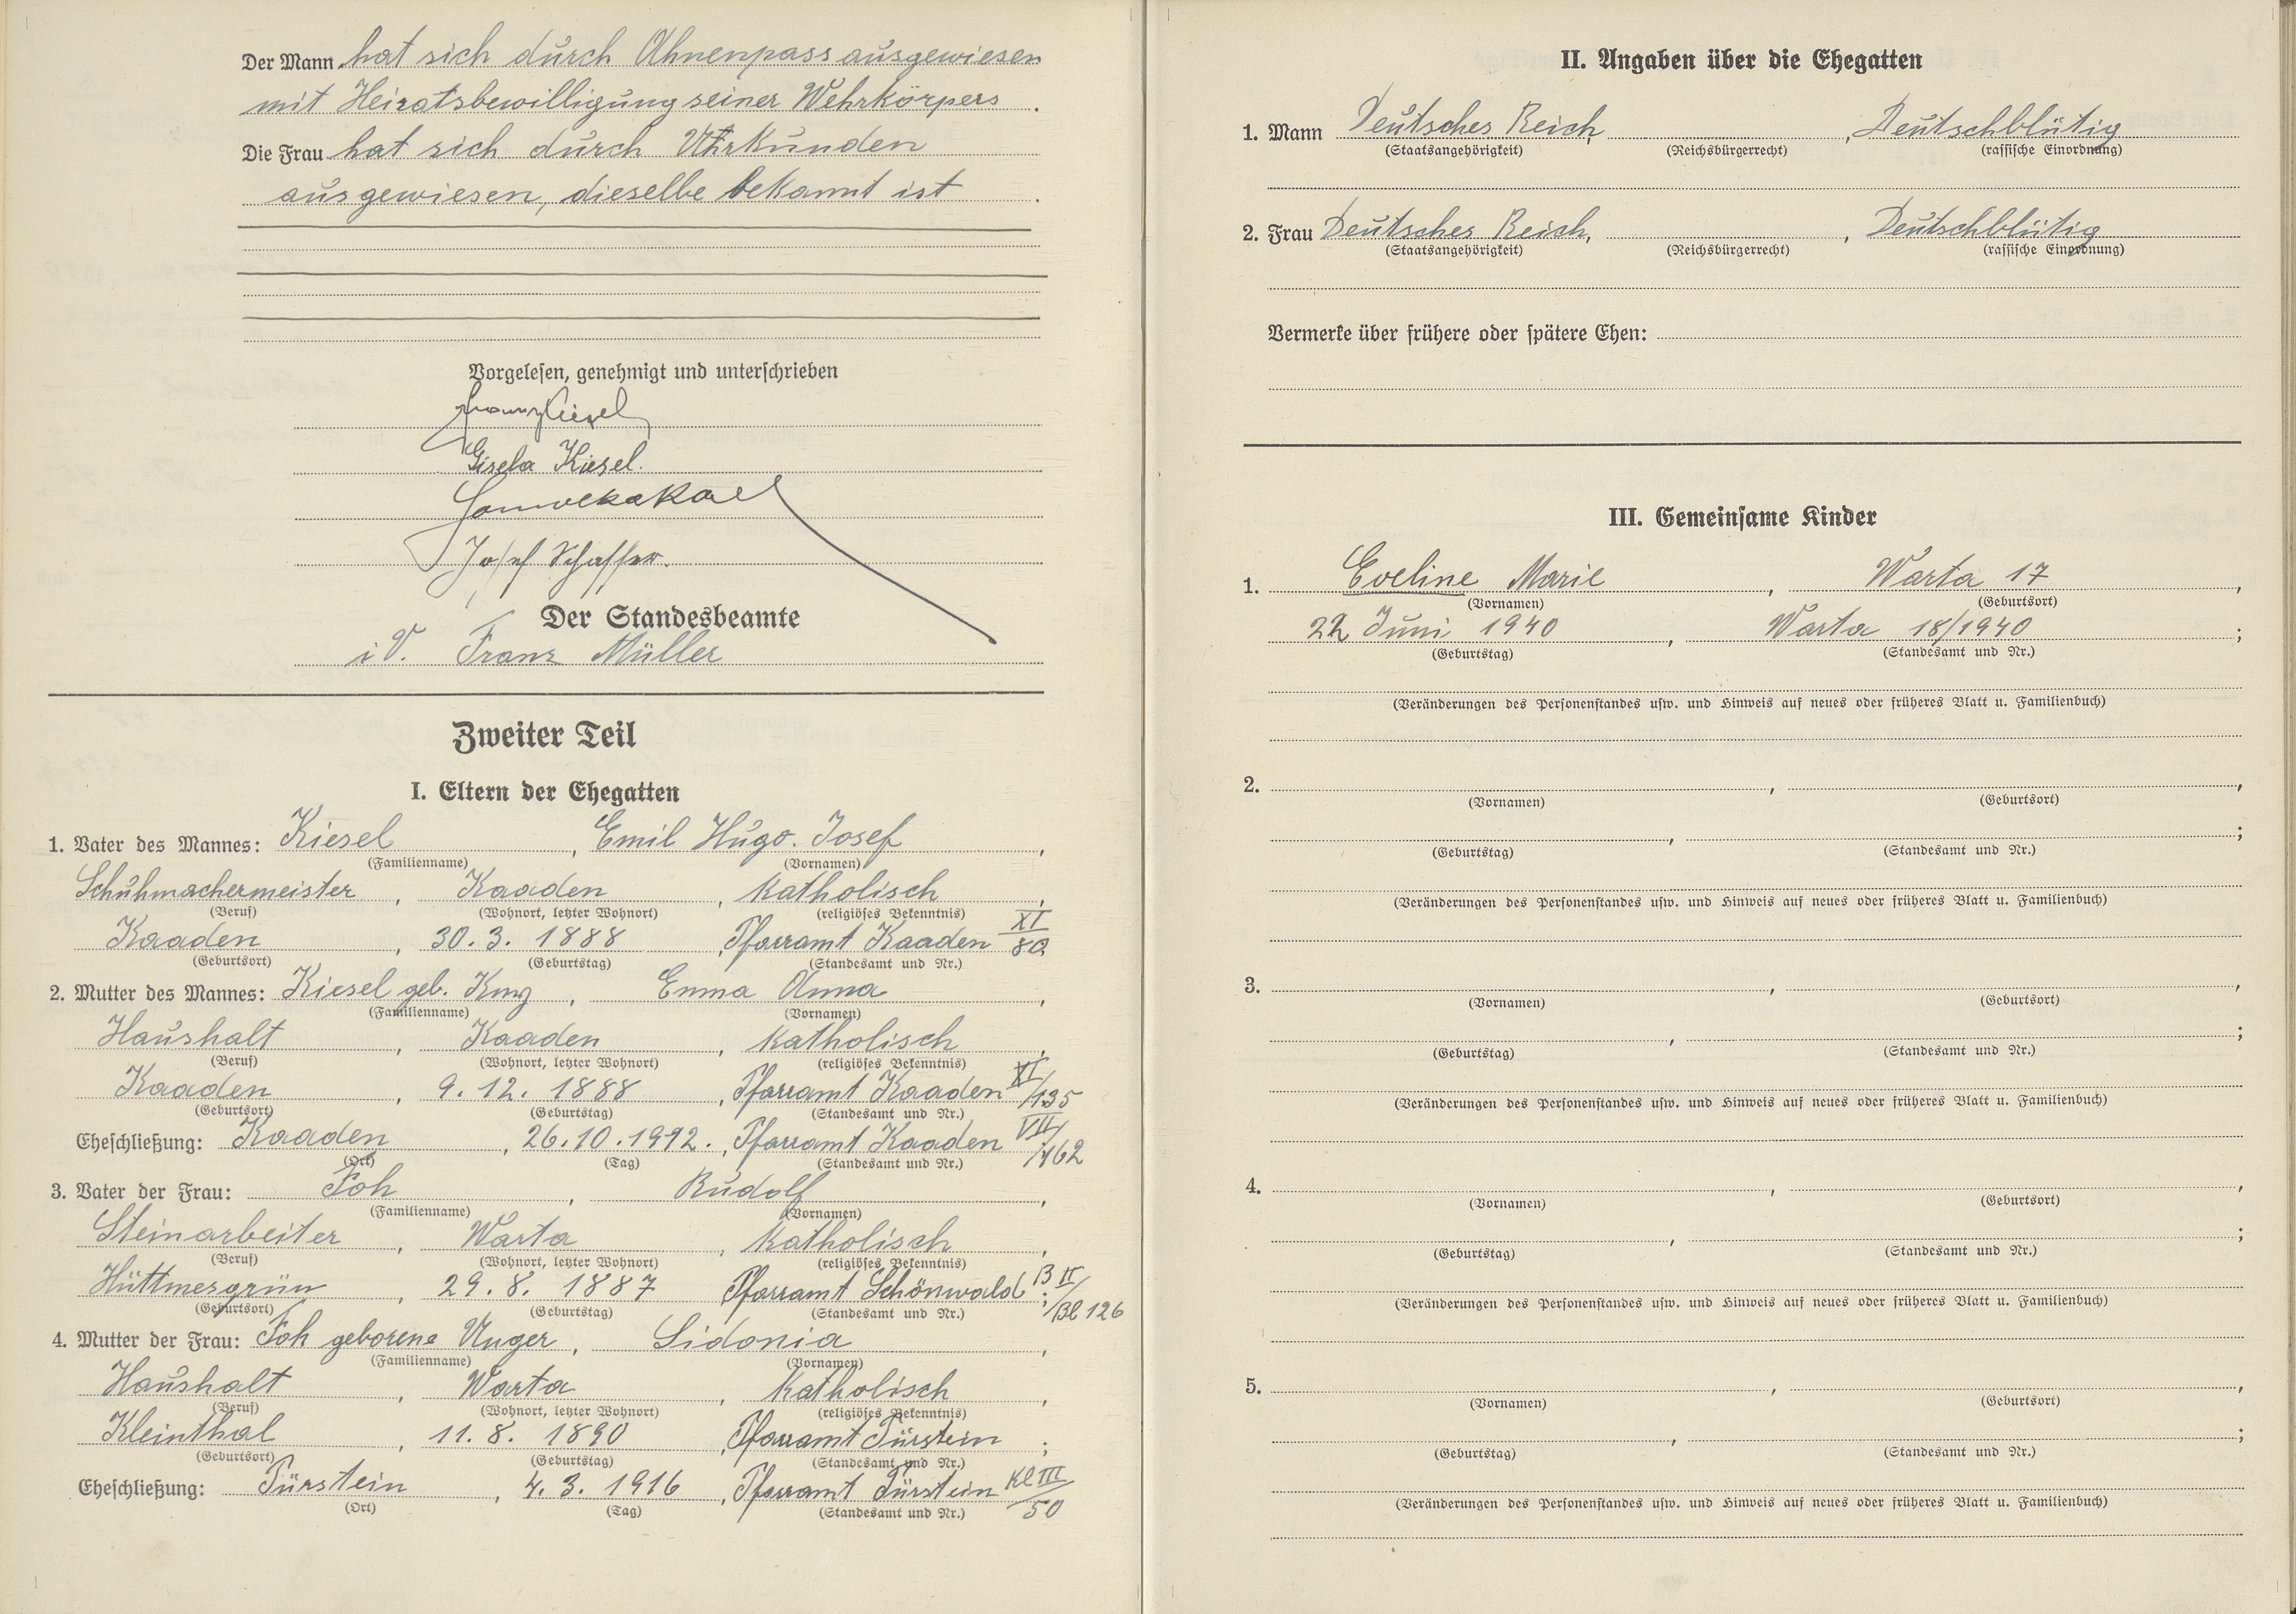 Der Mann hat sich durch Ahnenpass ausgewiesen
mit Heiratsbewilligung seiner Wehrkörpers .
Die Frau hat sich durch Urkunden
ausgewiesen, dieselbe bekannt ist .
Vorgelesen, genehmigt und unterschrieben
Franz Kiesel
Gisela Kiesel.
Josef Schaffer.
Der Standesbeamte
i V. Franz Müller
Zweiter Teil
I. Eltern der Ehegatten
1. Vater des Mannes: Kiesel , Emil Hugo. Josef ,
(Familienname) (Vornamen)
Schuhmachermeister , Kaaden , Katholisch ,
(Beruf) (Wohnort, letzter Wohnort) (religiöses Bekenntnis)
Kaaden , 30. 3. 1888 , Pfarramt Kaaden XI/80
(Geburtsort) (Geburtstag) (Standesamt und Nr.)
2. Mutter des Mannes: Kiesel geb. , Emma Anna ,
(Familienname) (Vornamen)
Haushalt , Kaaden , Katholisch ,
(Beruf) (Wohnort, letzter Wohnort) (religiöses Bekenntnis)
Kaaden , 9. 12. 1888 , Pfarramt Kaaden XI/135
(Geburtsort) (Geburtstag) (Standesamt und Nr.)
Eheschließung: Kaaden , 26. 10. 1912. , Pfarramt Kaaden VII/162
(Ort) (Tag) (Standesamt und Nr.)
3. Vater der Frau: Foh , Rudolf ,
(Familienname) (Vornamen)
Steinarbeiter , Warta , Katholisch ,
(Beruf) (Wohnort, letzter Wohnort) (religiöses Bekenntnis)
Hüttmesgrün , 29. 8. 1887 Pfarramt Schönwald ; B II/Bl 126
(Geburtsort) (Geburtstag) (Standesamt und Nr.)
4. Mutter der Frau: Foh geborene Unger , Sidonia ,
(Familienname) (Vornamen)
Haushalt , Warta , Katholisch ,
(Beruf) (Wohnort, letzter Wohnort) (religiöses Bekenntnis)
Kleinthal , 11. 8. 1890 , Pfarramt Pürstein ;
(Geburtsort) (Geburtstag) (Standesamt und Nr.)
Eheschließung: Pürstein , 4. 3. 1916 , Pfarramt Pürstein Kl III/50
(Ort) (Tag) (Standesamt und Nr.)
II. Angaben über die Ehegatten
1. Mann Deutsches Reich, , Deutschblütig
(Staatsangehörigkeit) (Reichsbürgerrecht) (rassische Einordnung)
2. Frau Deutsches Reich, , Deutschblütig
(Staatsangehörigkeit) (Reichsbürgerrecht) (rassische Einordnung)
Vermerke über frühere oder spätere Ehen:
III. Gemeinsame Kinder
1. Eveline Marie , Warta 17 ,
(Vornamen) (Geburtsort)
22 Juni 1940 , Warta 18/1940 ;
(Geburtstag) (Standesamt und Nr.)
(Veränderungen des Personenstandes usw. und Hinweis auf neues oder früheres Blatt u. Familienbuch)
2. , ,
(Vornamen) (Geburtsort)
, ;
(Geburtstag) (Standesamt und Nr.)
(Veränderungen des Personenstandes usw. und Hinweis auf neues oder früheres Blatt u. Familienbuch)
3. , ,
(Vornamen) (Geburtsort)
, ;
(Geburtstag) (Standesamt und Nr.)
(Veränderungen des Personenstandes usw. und Hinweis auf neues oder früheres Blatt u. Familienbuch)
4. , ,
(Vornamen) (Geburtsort)
, ;
(Geburtstag) (Standesamt und Nr.)
(Veränderungen des Personenstandes usw. und Hinweis auf neues oder früheres Blatt u. Familienbuch)
5. , ,
(Vornamen) (Geburtsort)
, ;
(Geburtstag) (Standesamt und Nr.)
(Veränderungen des Personenstandes usw. und Hinweis auf neues oder früheres Blatt u. Familienbuch)